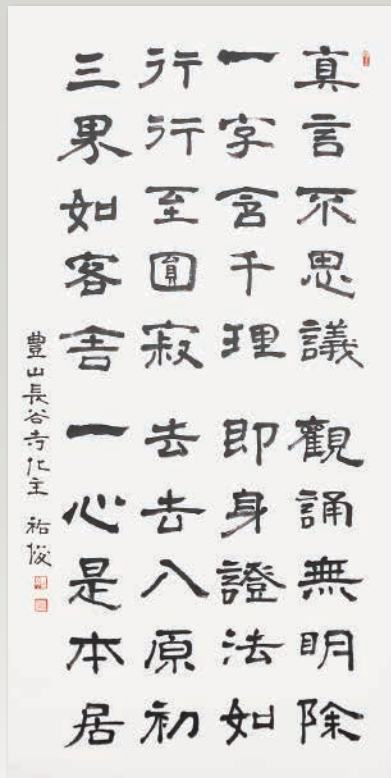 真言不思議觀誦無明除
一字含千理即身證法如
行行至圓寂去去入原初
三界如客舎一心是本居
豊山長谷寺化主 祐俊